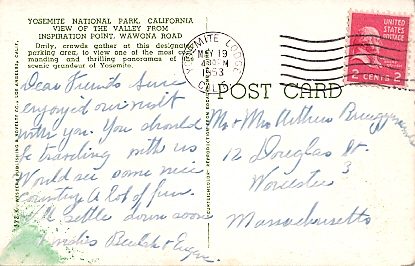 YOSEMITE NATIONAL PARK, CALIFORNIA
VIEW OF THE VALLEY FROM
INSPIRATION POINT, WAWONA ROAD
Daily, crowds gather at this designated
parking area, to view one of the most com-
manding and thrilling panoramas of the
scenic grandeur of Yosemite.
Dear Friends Sure
enjoyed our visit
with you. You should
be traveling with us
Would see some nice
country. A lot of fun.
settle down soon
Beulah &
YOSEMITE LODGE
MAY 19
M
1953
CALIF.
UNITED STATES
POSTAGE
2 CENTS 2
POST CARD
Mr & Mrs Arthur
12 Douglas St
Worcester 3
Massachusetts